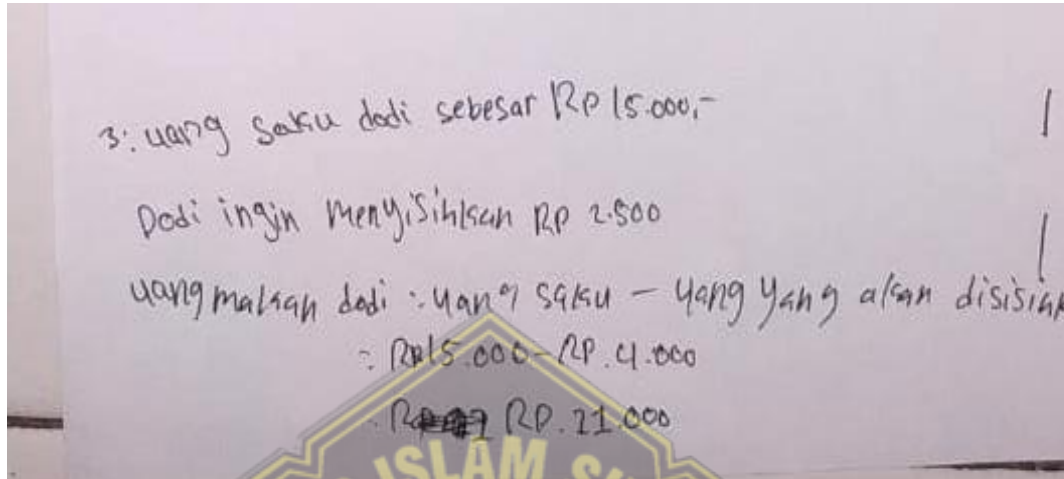 3. uang saku dodi sebesar Rp 15.000,-
Dodi ingin menyisihkan Rp 2.500
uang makan dodi : uang saku - uang yang akan disisihk
: Rp15.000 - Rp. 4.000
Rp. 11.000
ISLAM SU